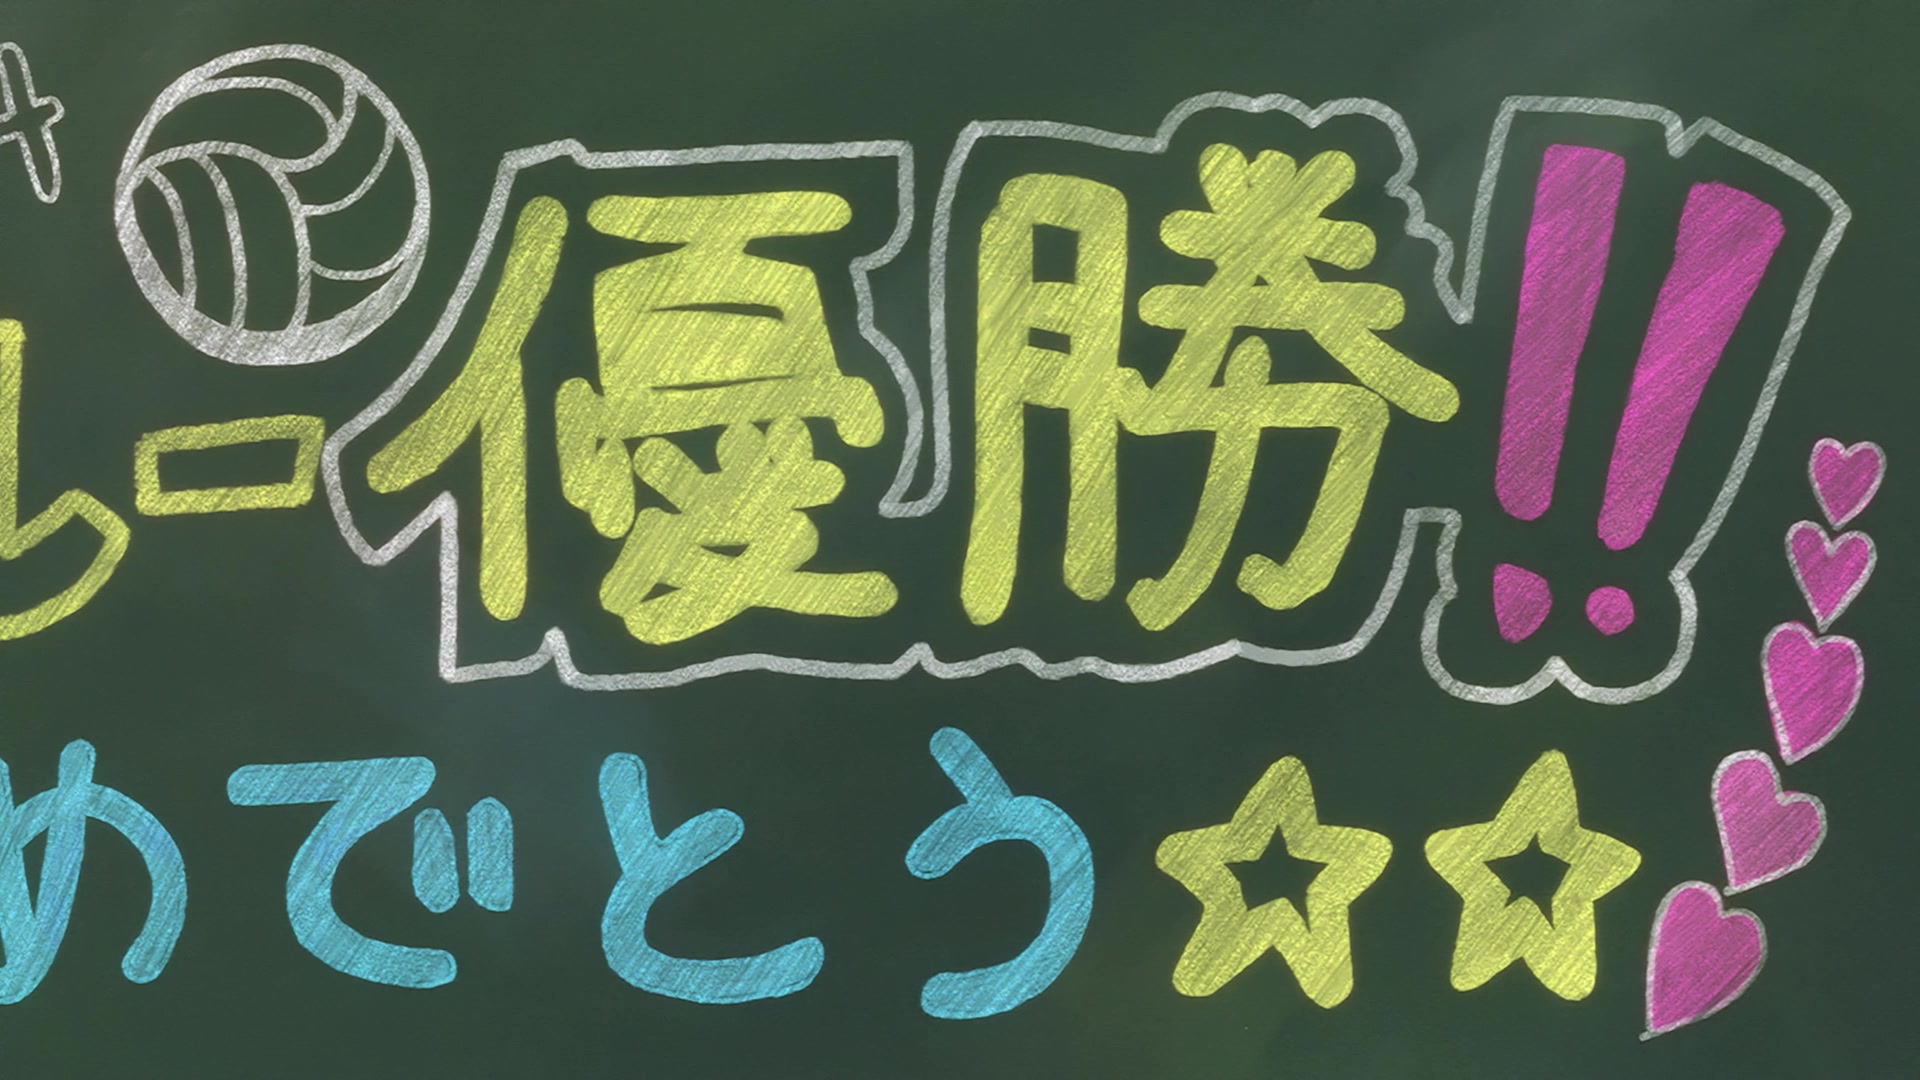 ルー優勝!!
めでとう☆☆